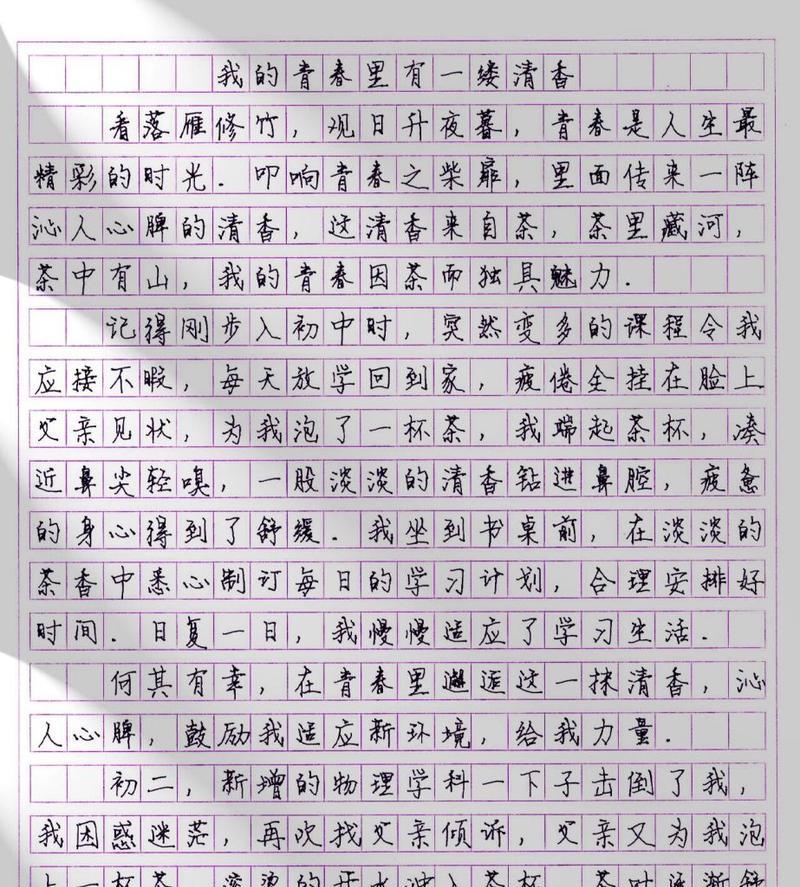 我的青春里有一缕清香
看落雁修竹，观日升夜暮，青春是人生最
精彩的时光．叩响青春之柴扉，里面传来一阵
沁人心脾的清香，这清香来自茶，茶里藏河，
茶中有山，我的青春因茶而独具魅力．
记得刚步入初中时，突然变多的课程令我
应接不暇，每天放学回到家，疲倦全挂在脸上
父亲见状，为我泡了一杯茶，我端起茶杯，凑
近鼻尖轻嗅，一股淡淡的清香钻进鼻腔，疲惫
的身心得到了舒缓．我坐到书桌前，在淡淡的
茶香中悉心制订每日的学习计划，合理安排好
时间．日复一日，我慢慢适应了学习生活．
何其有幸，在青春里邂逅这一抹清香，沁
人心脾，鼓励我适应新环境，给我力量．
初二，新增的物理学科一下子击倒了我，
我困惑迷茫，再次找父亲倾诉，父亲又为我泡
上一杯茶．滚烫的开水冲入茶杯，茶叶逐渐舒